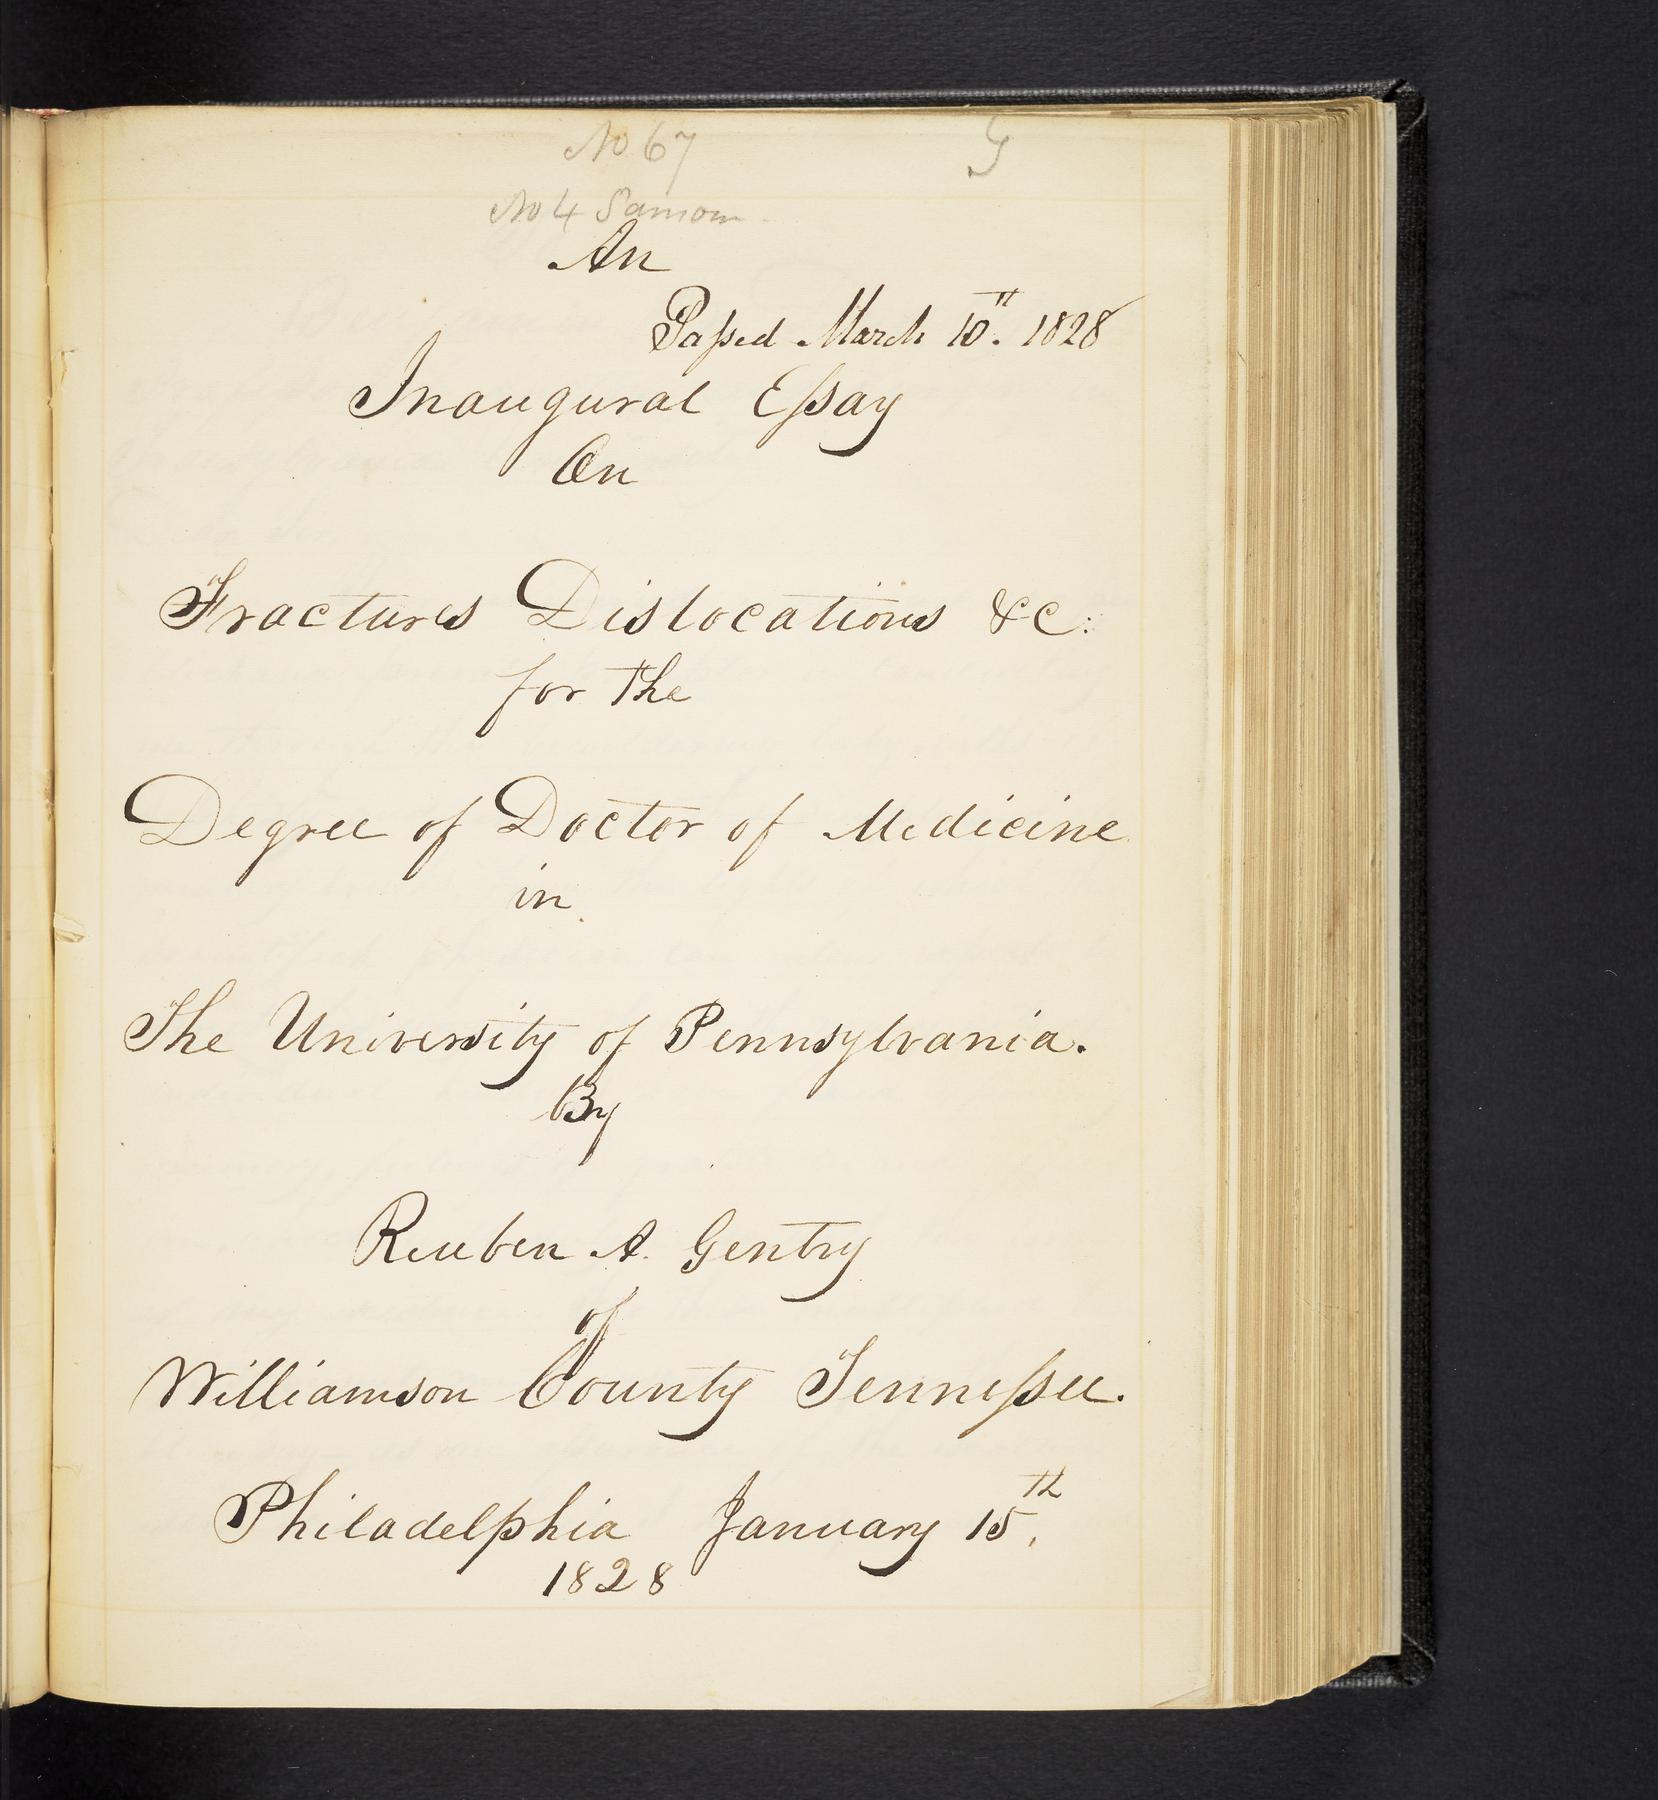 No 67 G
No 4 Sansom
An
Paſsed March 10th. 1828
Inaugural Eſsay
On
Fractures Dislocations &c:
for the
Degree of Doctor of Medicine
in
The University of Pennsylvania.
By
Reuben A. Gentry
of
Williamson County Tenneſsee.
Philadelphia January 15th,
1828